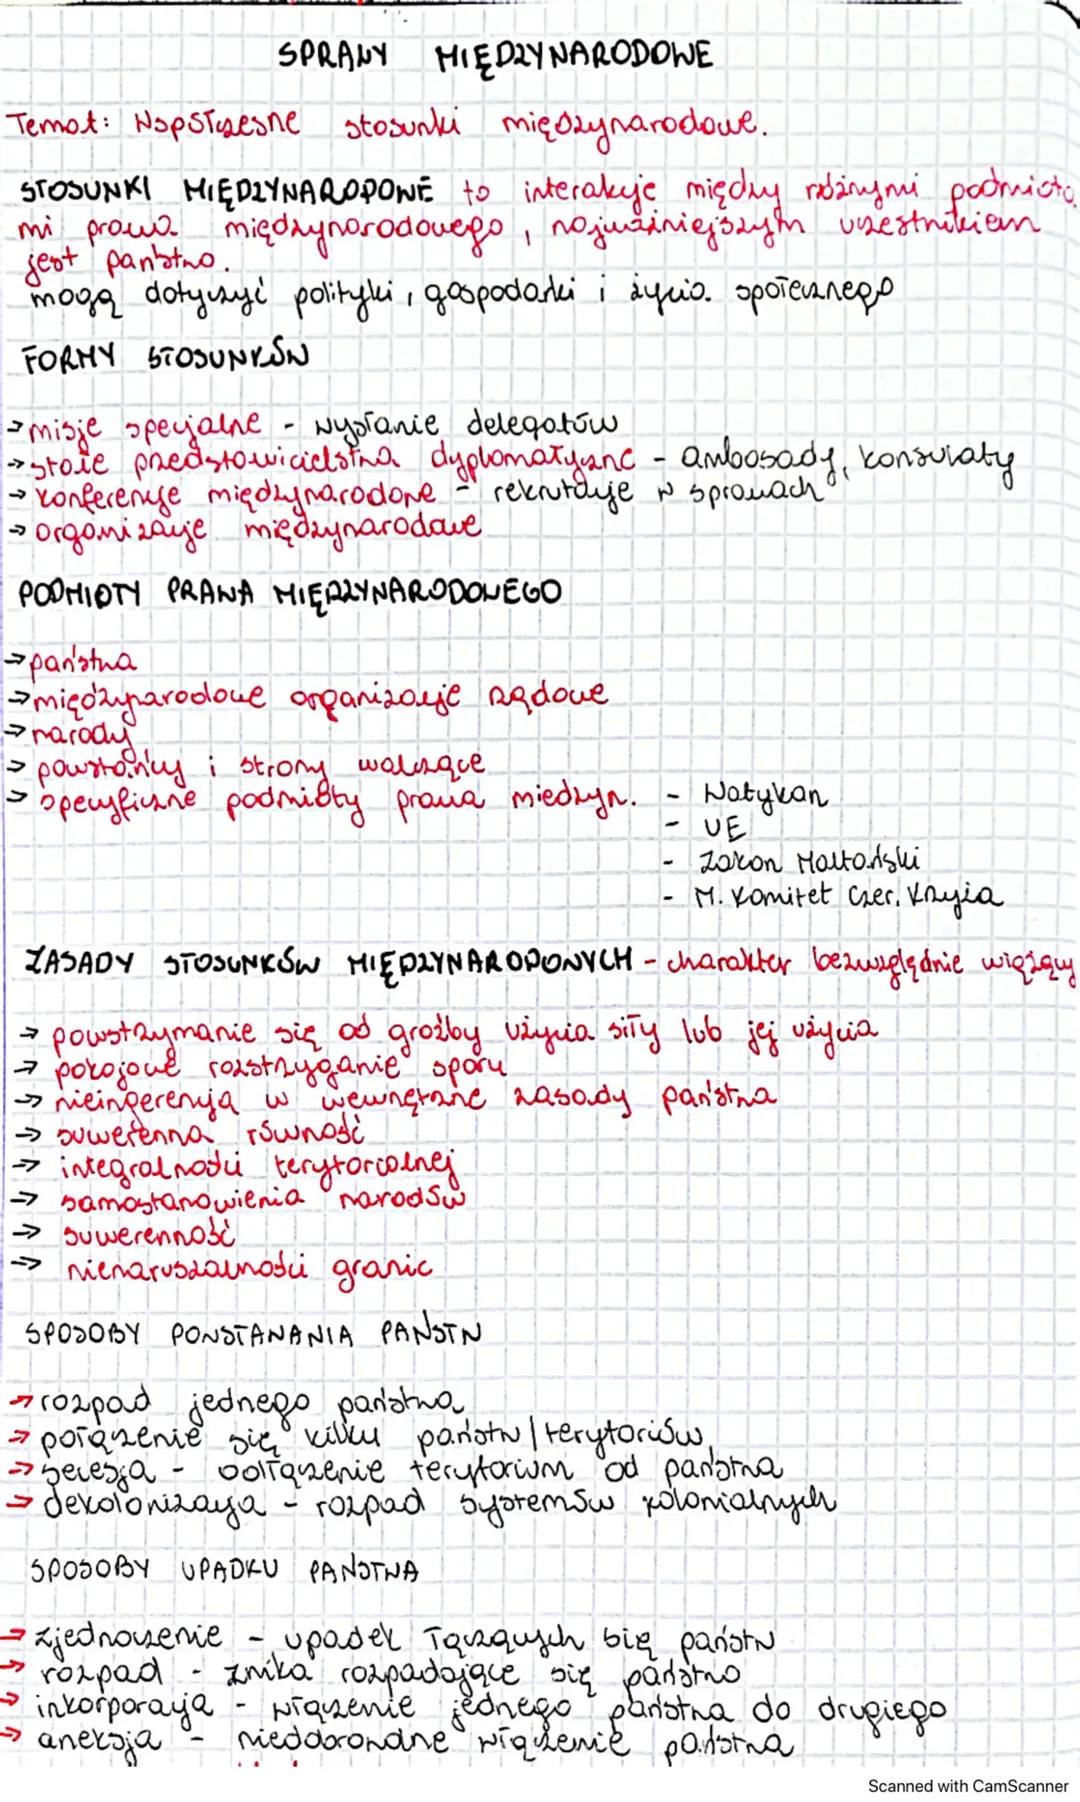 SPRAWY MIĘDZYNARODOWE
Temat: Współczesne stosunki międzynarodowe.
STOSUNKI MIĘDZYNARODOWE to interakcje między różnymi podmiota
mi prawa międzynarodowego, najważniejszym uczestnikiem
jest państwo.
mogą dotyczyć polityki, gospodarki i życia społecznego
FORMY STOSUNKÓW
→ misje specjalne - wysłanie delegatów
→ stałe przedstawicielstwa dyplomatyczne - ambasady, konsulaty
→ konferencje międzynarodowe - w sprawach
→ organizacje międzynarodowe
PODMIOTY PRAWA MIĘDZYNARODOWEGO
→ państwa
→ międzynarodowe organizacje rządowe
→ narody
→ powstańcy i strony walczące
→ specyficzne podmioty prawa miedzyn. - Watykan
- UE
- Zakon Maltański
- M. Komitet Czer. Krzyża
ZASADY STOSUNKÓW MIĘDZYNARODOWYCH - charakter bezwzględnie wiążący
→ powstrzymanie się od groźby użycia siły lub jej użycia
→ pokojowe rozstrzyganie sporu
→ nieingerencja w wewnętrzne zasady państwa
→ suwerenna równość
→ integralności terytorialnej
→ samostanowienia narodów
→ suwerenność
→ nienaruszalności granic
SPOSOBY POWSTAWANIA PAŃSTW
→ rozpad jednego państwa
→ połączenie się kilku państw/terytoriów
→ secesja - odłączenie terytorium od państwa
→ dekolonizacja - rozpad systemów kolonialnych
SPOSOBY UPADKU PAŃSTWA
→ zjednoczenie - upadek łączących się państw
→ rozpad - znika rozpadające się państwo
→ inkorporacja - włączenie jednego państwa do drugiego
→ aneksja - włączenie państwa
Scanned with CamScanner